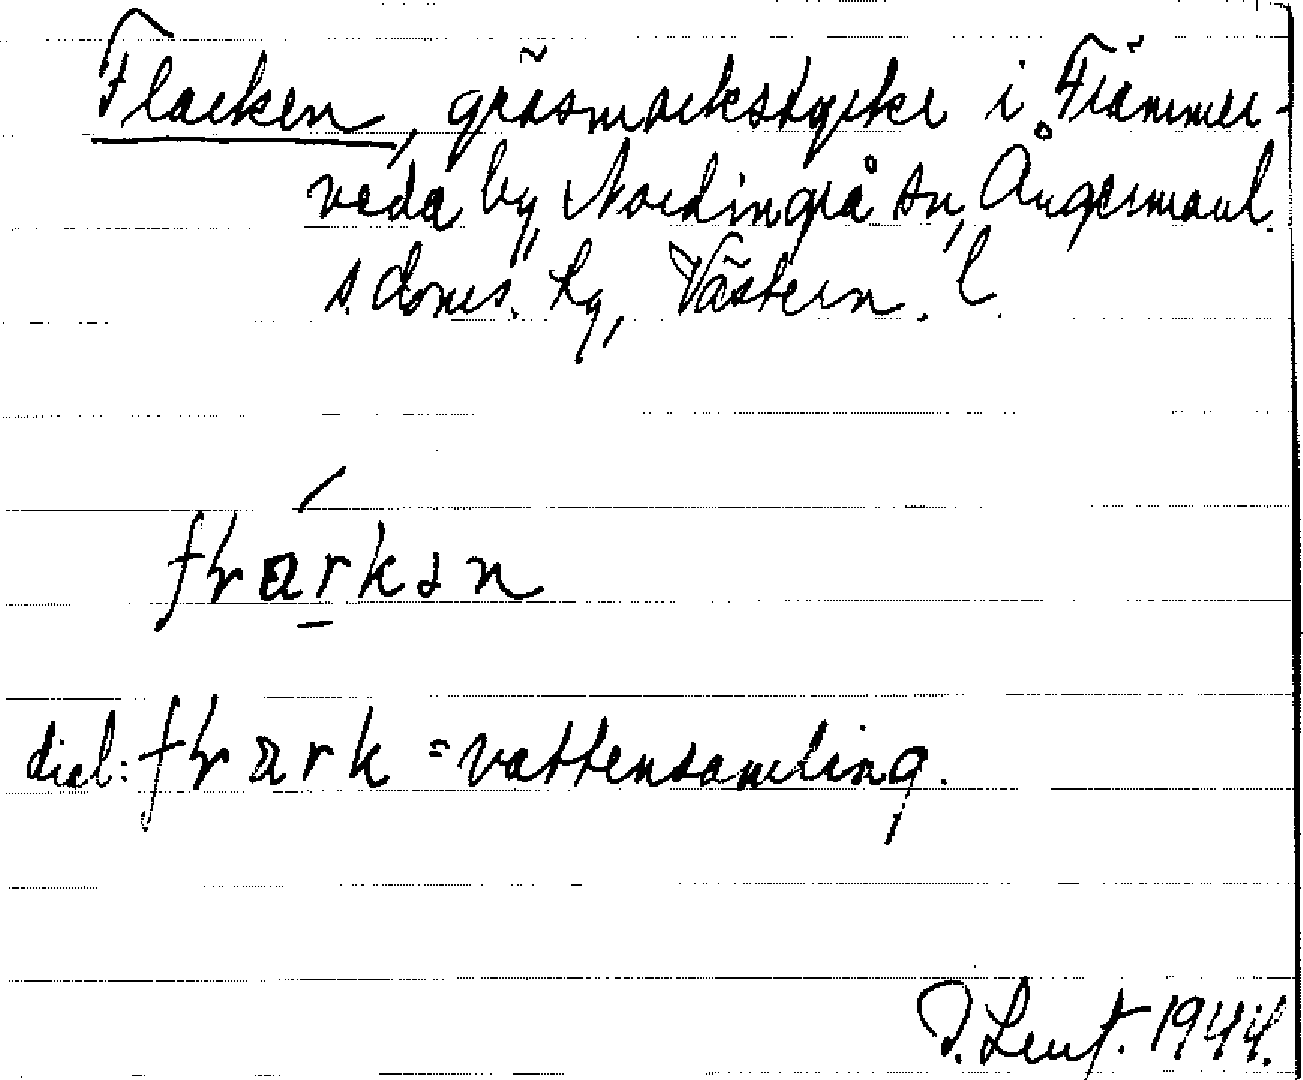 Flarken, gräsmarkstycke i Främmer-
veda by, Nordingrå sn, Ångermanl.
s. doms. hg, Västern. l.
flarkən
dial: flark = vattensamling.
1944.